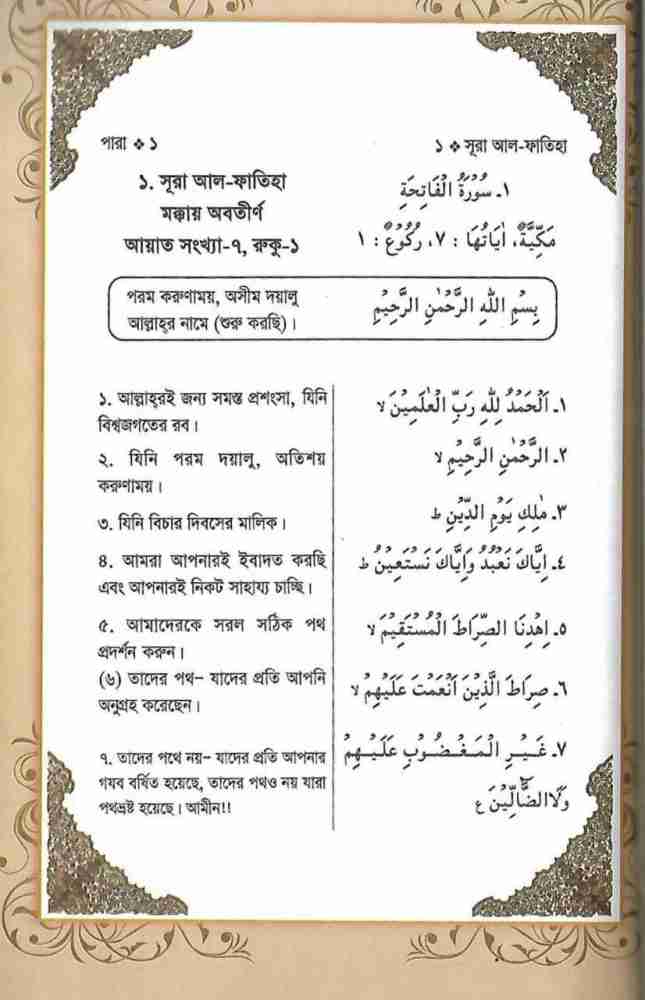 পারা ❖ ১
১ ❖ সূরা আল-ফাতিহা
১. সূরা আল-ফাতিহা
মক্কায় অবতীর্ণ
আয়াত সংখ্যা-৭, রুকু-১
١ـ سُوْرَةُ الْفَاتِحَةِ
مَكِّيَّةٌ، اٰيَاتُهَا : ٧، رُكُوْعٌ : ١
পরম করুণাময়, অসীম দয়ালু
আল্লাহ্‌র নামে (শুরু করছি)।
بِسْمِ اللهِ الرَّحْمٰنِ الرَّحِيْمِ
১. আল্লাহ্‌রই জন্য সমস্ত প্রশংসা, যিনি
বিশ্বজগতের রব।
২. যিনি পরম দয়ালু, অতিশয়
করুণাময়।
৩. যিনি বিচার দিবসের মালিক।
৪. আমরা আপনারই ইবাদত করছি
এবং আপনারই নিকট সাহায্য চাচ্ছি।
৫. আমাদেরকে সরল সঠিক পথ
প্রদর্শন করুন।
(৬) তাদের পথ– যাদের প্রতি আপনি
অনুগ্রহ করেছেন।
৭. তাদের পথে নয়– যাদের প্রতি আপনার
গযব বর্ষিত হয়েছে, তাদের পথও নয় যারা
পথভ্রষ্ট হয়েছে। আমীন!!
١ـ اَلْحَمْدُ لِلّٰهِ رَبِّ الْعٰلَمِيْنَ لا
٢ـ الرَّحْمٰنِ الرَّحِيْمِ لا
٣ـ مٰلِكِ يَوْمِ الدِّيْنِ ط
٤ـ اِيَّاكَ نَعْبُدُ وَاِيَّاكَ نَسْتَعِيْنُ ط
٥ـ اِهْدِنَا الصِّرَاطَ الْمُسْتَقِيْمَ لا
٦ـ صِرَاطَ الَّذِيْنَ اَنْعَمْتَ عَلَيْهِمْ لا
٧ـ غَيْرِ الْمَغْضُوْبِ عَلَيْهِمْ
وَلَا الضَّآلِّيْنَ ع